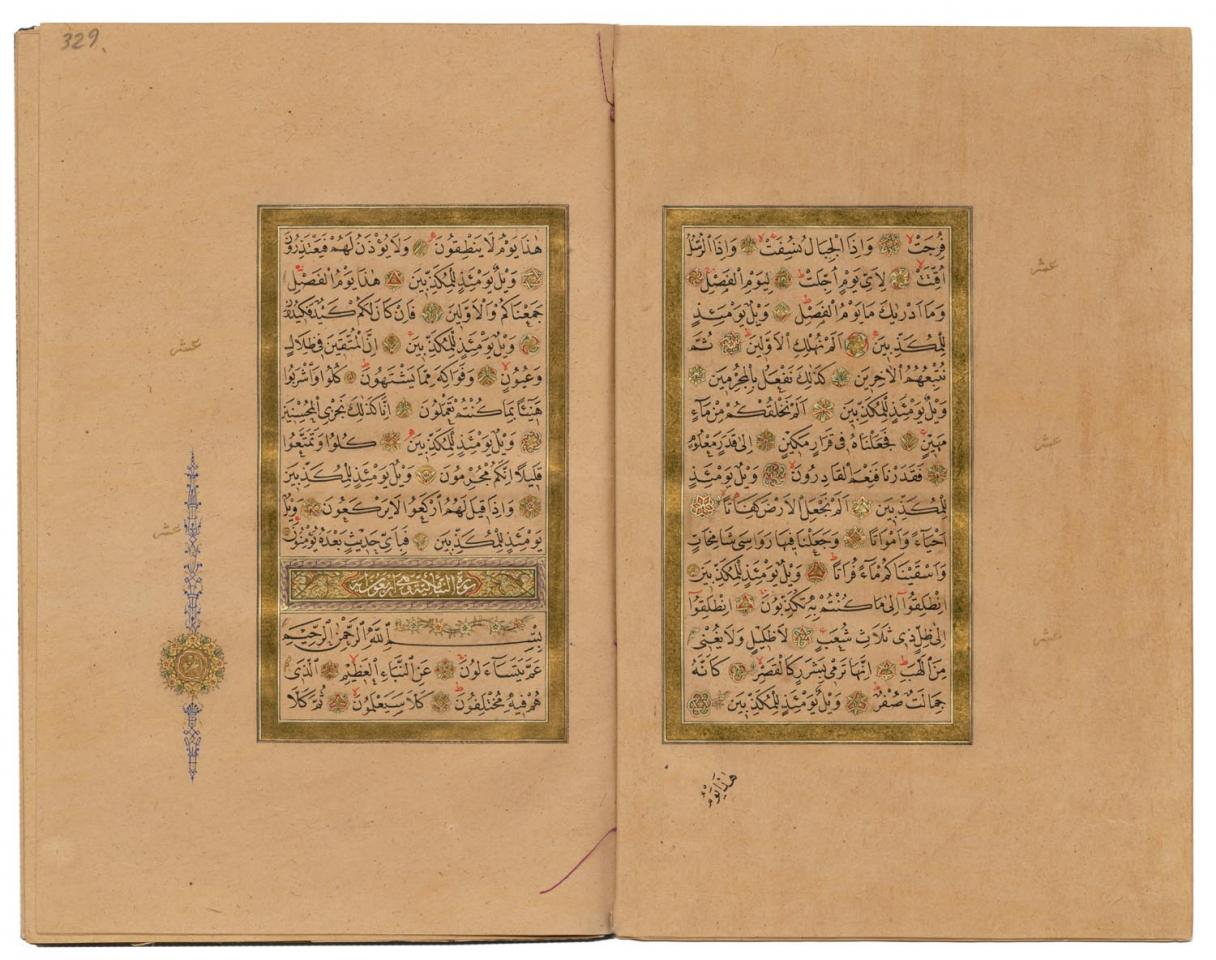 فُرِجَتْ وَاِذَا الْجِبَالُ نُسِفَتْ وَاِذَا الرُّسُلُ
اُقِّتَتْ لِاَىِّ يَوْمٍ اُجِّلَتْ لِيَوْمِ الْفَصْلِ
وَمَا اَدْرٰيكَ مَا يَوْمُ الْفَصْلِ وَيْلٌ يَوْمَئِذٍ
لِلْمُكَذِّبِينَ اَلَمْ نُهْلِكِ الْاَوَّلِينَ ثُمَّ
نُتْبِعُهُمُ الْاٰخِرِينَ كَذٰلِكَ نَفْعَلُ بِالْمُجْرِمِينَ
وَيْلٌ يَوْمَئِذٍ لِلْمُكَذِّبِينَ اَلَمْ نَخْلُقْكُمْ مِنْ مَاءٍ
مَهِينٍ فَجَعَلْنَاهُ فِى قَرَارٍ مَكِينٍ اِلٰى قَدَرٍ مَعْلُومٍ
فَقَدَرْنَا فَنِعْمَ الْقَادِرُونَ وَيْلٌ يَوْمَئِذٍ
لِلْمُكَذِّبِينَ اَلَمْ نَجْعَلِ الْاَرْضَ كِفَاتًا
اَحْيَاءً وَاَمْوَاتًا وَجَعَلْنَا فِيهَا رَوَاسِىَ شَامِخَاتٍ
وَاَسْقَيْنَاكُمْ مَاءً فُرَاتًا وَيْلٌ يَوْمَئِذٍ لِلْمُكَذِّبِينَ
اِنْطَلِقُوا اِلٰى مَا كُنْتُمْ بِهِ تُكَذِّبُونَ اِنْطَلِقُوا
اِلٰى ظِلٍّ ذِى ثَلَاثِ شُعَبٍ لَا ظَلِيلٍ وَلَا يُغْنِى
مِنَ اللَّهَبِ اِنَّهَا تَرْمِى بِشَرَرٍ كَالْقَصْرِ كَاَنَّهُ
جِمَالَتٌ صُفْرٌ وَيْلٌ يَوْمَئِذٍ لِلْمُكَذِّبِينَ
هٰذَا يَوْمُ
عشر
عشر
عشر
329
هٰذَا يَوْمُ لَا يَنْطِقُونَ وَلَا يُؤْذَنُ لَهُمْ فَيَعْتَذِرُونَ
وَيْلٌ يَوْمَئِذٍ لِلْمُكَذِّبِينَ هٰذَا يَوْمُ الْفَصْلِ
جَمَعْنَاكُمْ وَالْاَوَّلِينَ فَاِنْ كَانَ لَكُمْ كَيْدٌ فَكِيدُونِ
وَيْلٌ يَوْمَئِذٍ لِلْمُكَذِّبِينَ اِنَّ الْمُتَّقِينَ فِى ظِلَالٍ
وَعُيُونٍ وَفَوَاكِهَ مِمَّا يَشْتَهُونَ كُلُوا وَاشْرَبُوا
هَنِيئًا بِمَا كُنْتُمْ تَعْمَلُونَ اِنَّا كَذٰلِكَ نَجْزِى الْمُحْسِنِينَ
وَيْلٌ يَوْمَئِذٍ لِلْمُكَذِّبِينَ كُلُوا وَتَمَتَّعُوا
قَلِيلًا اِنَّكُمْ مُجْرِمُونَ وَيْلٌ يَوْمَئِذٍ لِلْمُكَذِّبِينَ
وَاِذَا قِيلَ لَهُمُ ارْكَعُوا لَا يَرْكَعُونَ وَيْلٌ
يَوْمَئِذٍ لِلْمُكَذِّبِينَ فَبِاَىِّ حَدِيثٍ بَعْدَهُ يُؤْمِنُونَ
بِسْمِ اللّٰهِ الرَّحْمٰنِ الرَّحِيمِ
عَمَّ يَتَسَاءَلُونَ عَنِ النَّبَاِ الْعَظِيمِ الَّذِى
هُمْ فِيهِ مُخْتَلِفُونَ كَلَّا سَيَعْلَمُونَ ثُمَّ كَلَّا
عشر
عشر